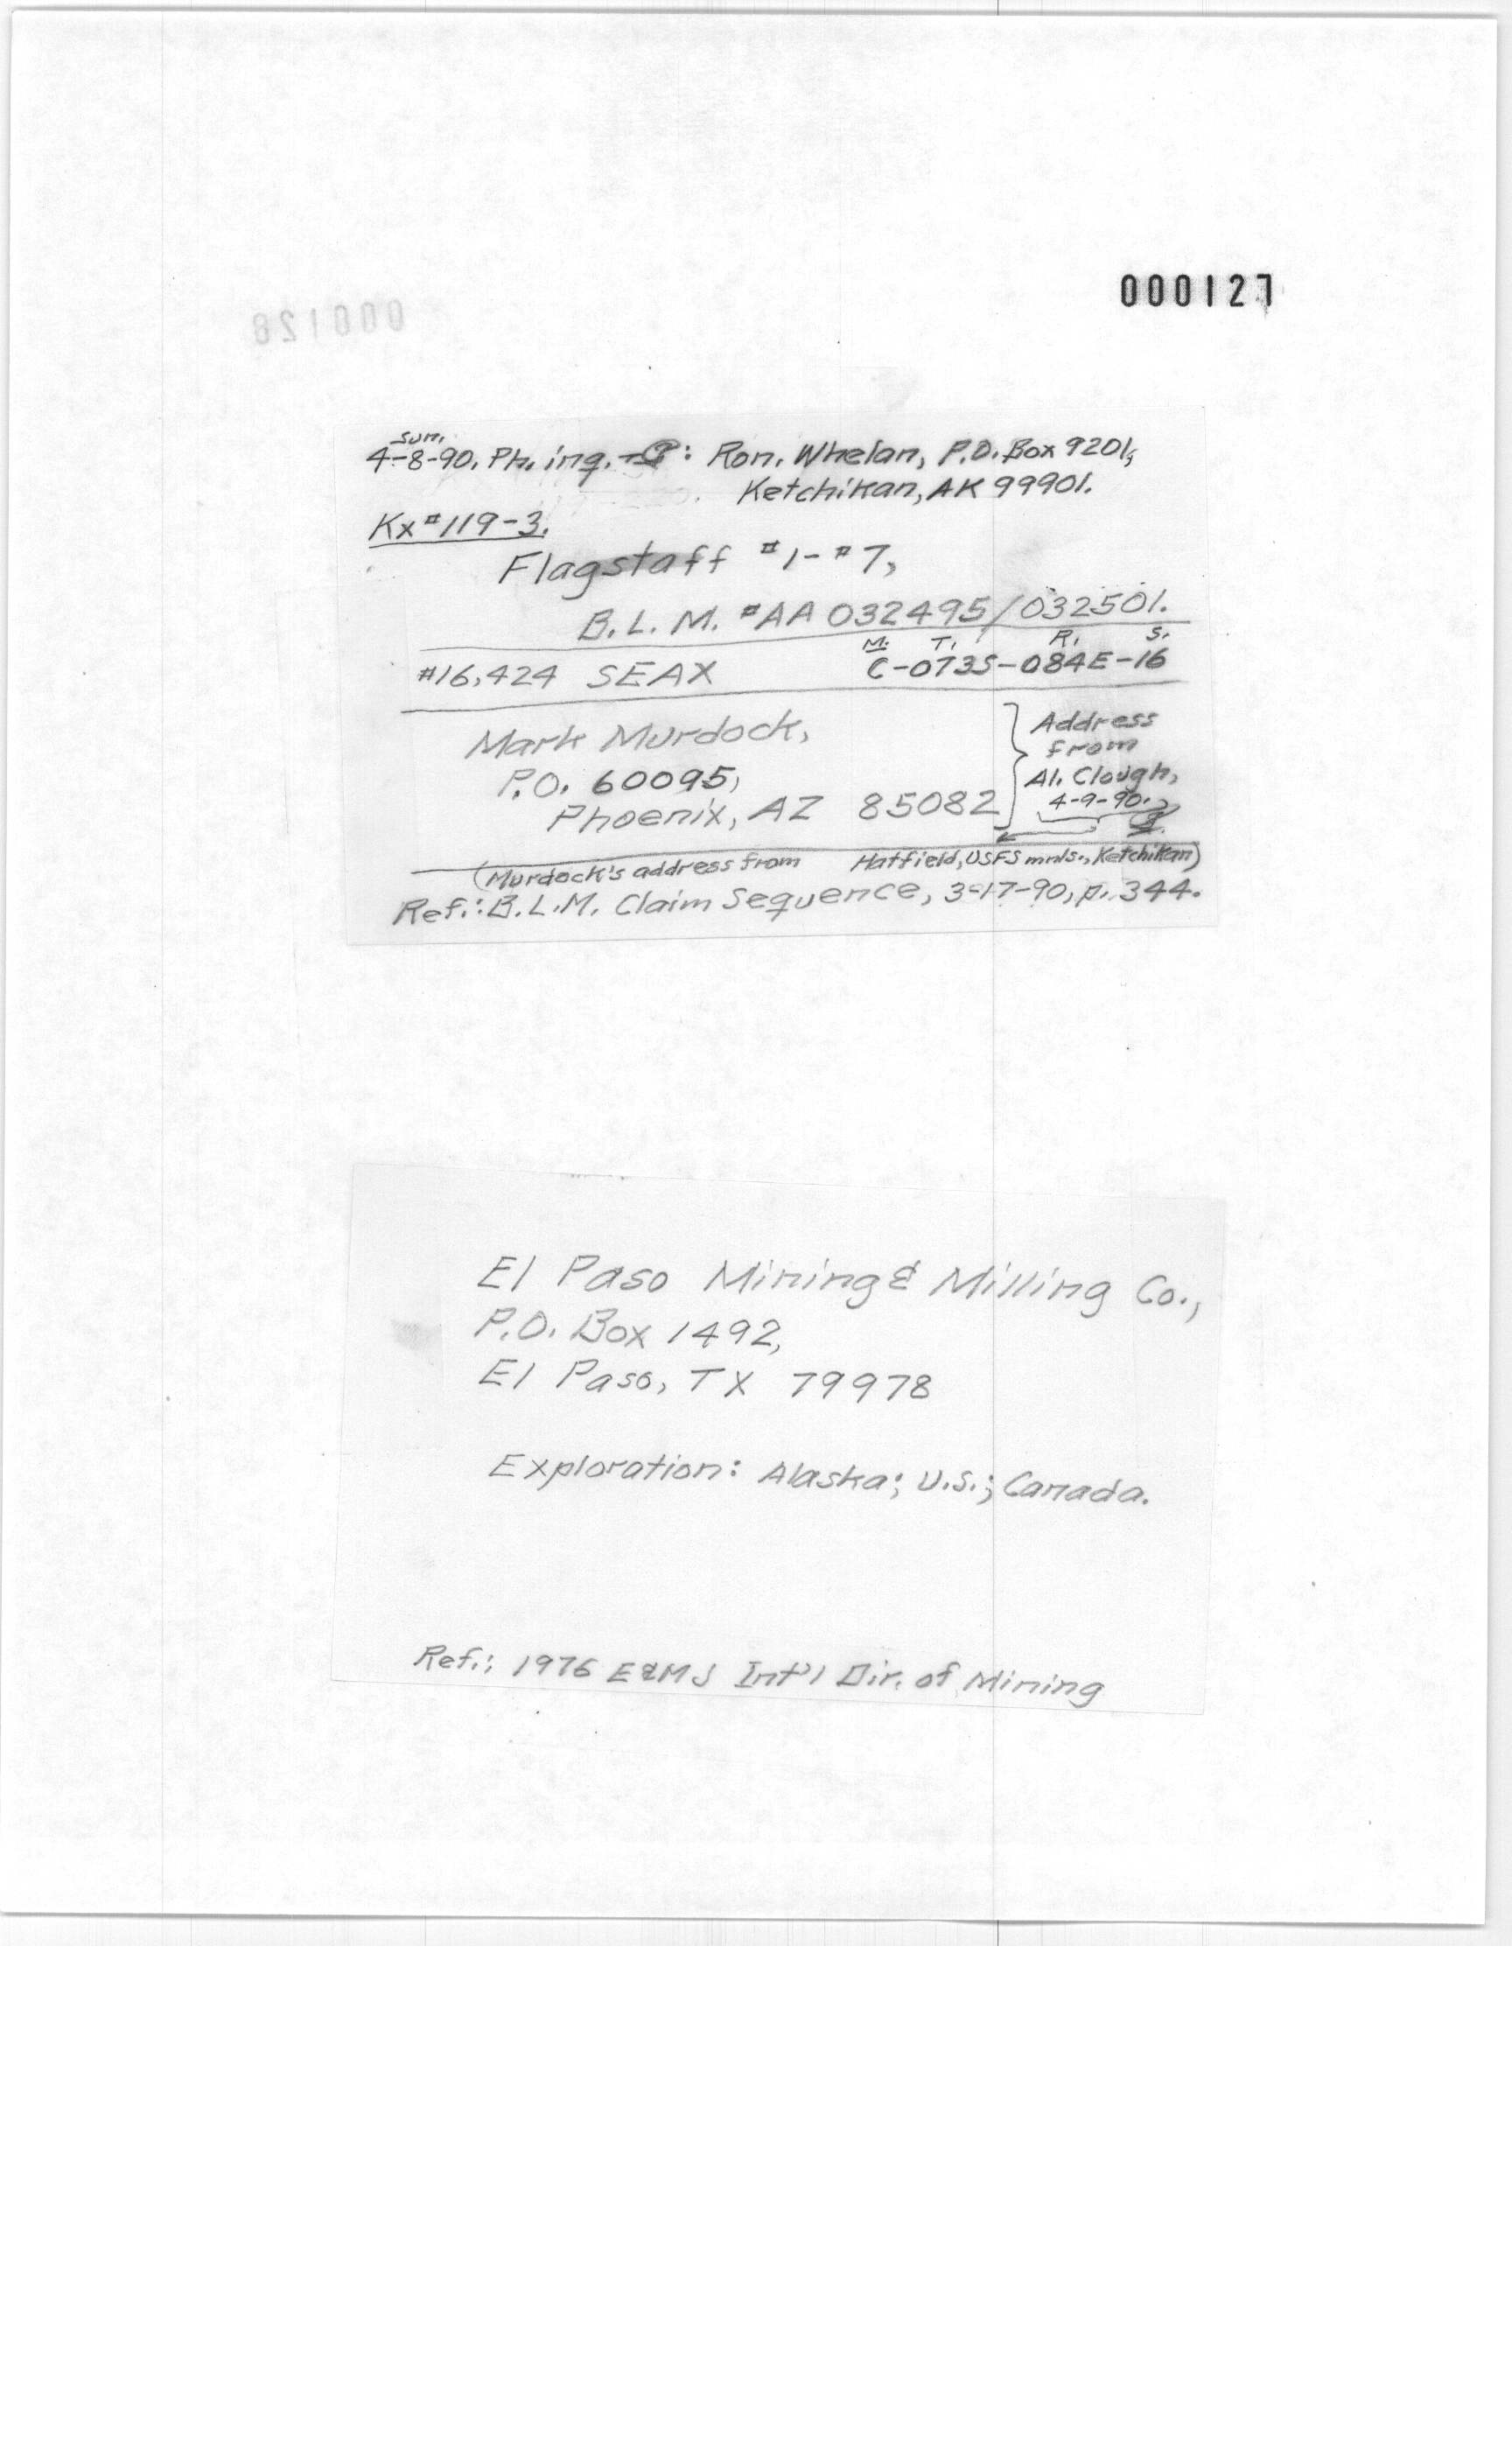 000127
000128
Sun.
4-8-90. Ph. inq. : Ron. Whelan, P.O. Box 9201,
Ketchikan, AK 99901.
Kx #119-3.
Flagstaff #1-#7,
B.L.M. #AA 032495/032501.
M. T. R. S.
#16,424 SEAX C-073S-084E-16
Mark Murdock, Address
from
P.O. 60095, Al. Clough,
Phoenix, AZ 85082 4-9-90.
(Murdock's address from Hatfield, USFS mnls., Ketchikan)
Ref.: B.L.M. Claim Sequence, 3-17-90, p. 344.
El Paso Mining & Milling Co.,
P.O. Box 1492,
El Paso, TX 79978
Exploration: Alaska; U.S.; Canada.
Ref.: 1976 E&MJ Int'l Dir. of Mining